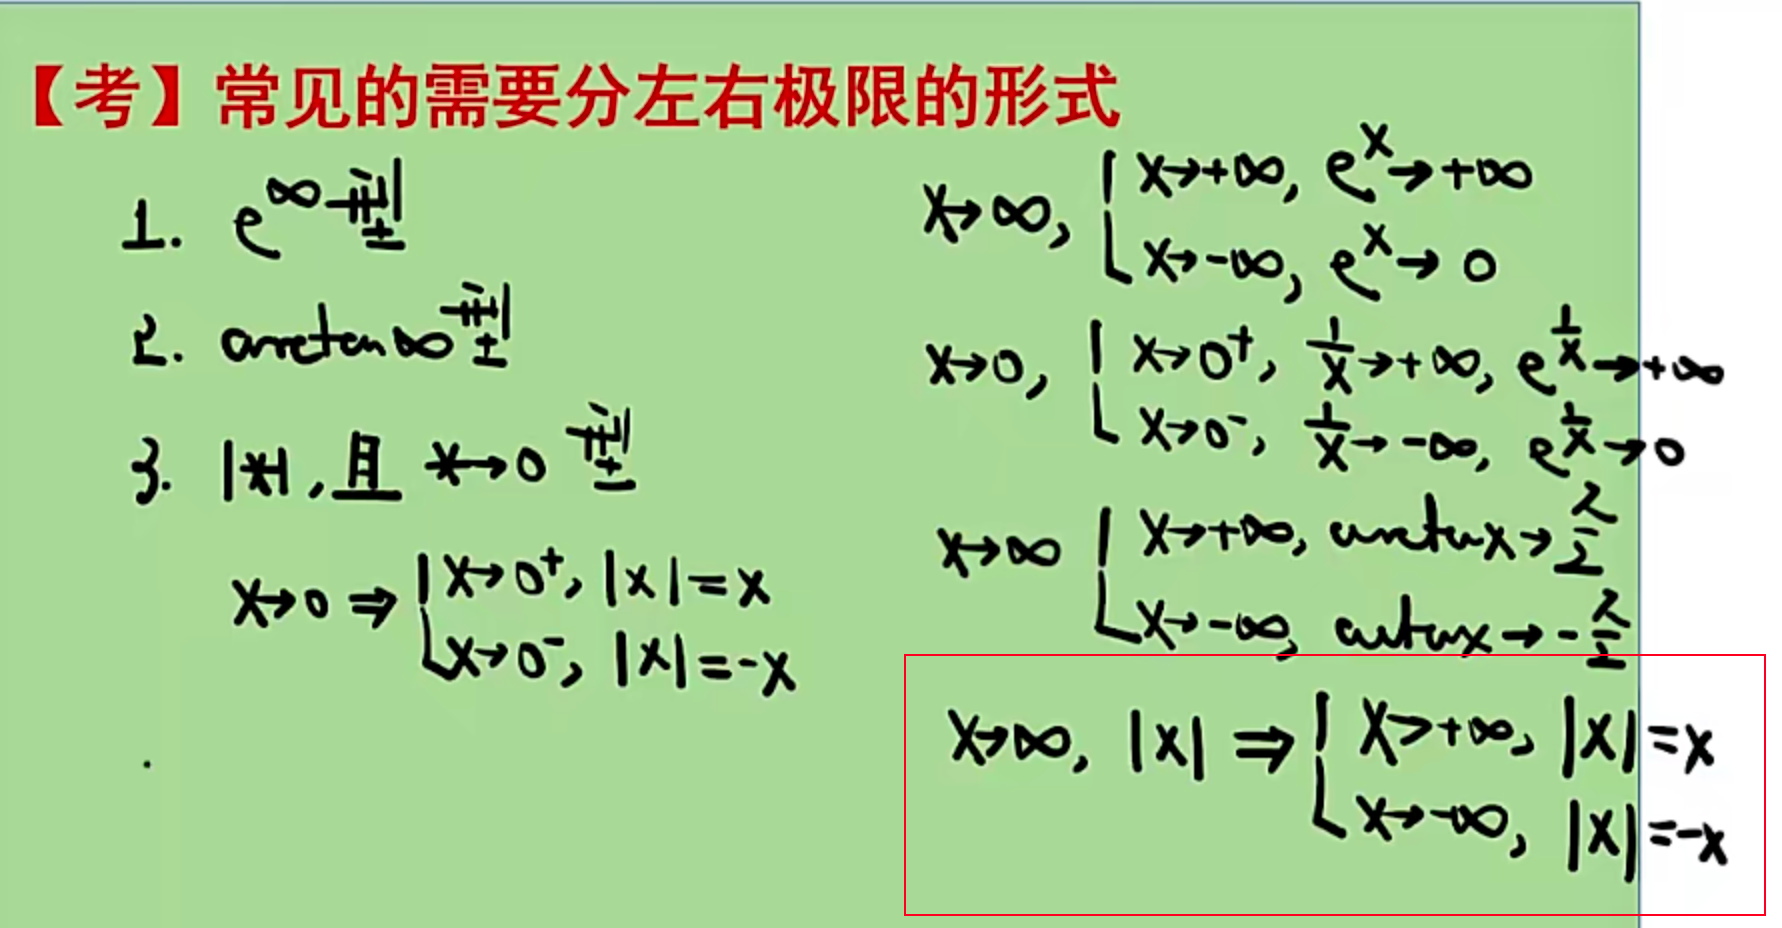 【考】常见的需要分左右极限的形式
1. e^∞型
2. arctan∞型
3. |*|,且 *→0 型
x→0 ⇒ { x→0⁺, |x|=x
x→0⁻, |x|=-x
x→∞, { x→+∞, e^x→+∞
x→-∞, e^x→0
x→0, { x→0⁺, 1/x→+∞, e^(1/x)→+∞
x→0⁻, 1/x→-∞, e^(1/x)→0
x→∞ { x→+∞, arctanx→π/2
x→-∞, arctanx→-π/2
x→∞, |x| ⇒ { x→+∞, |x|=x
x→-∞, |x|=-x